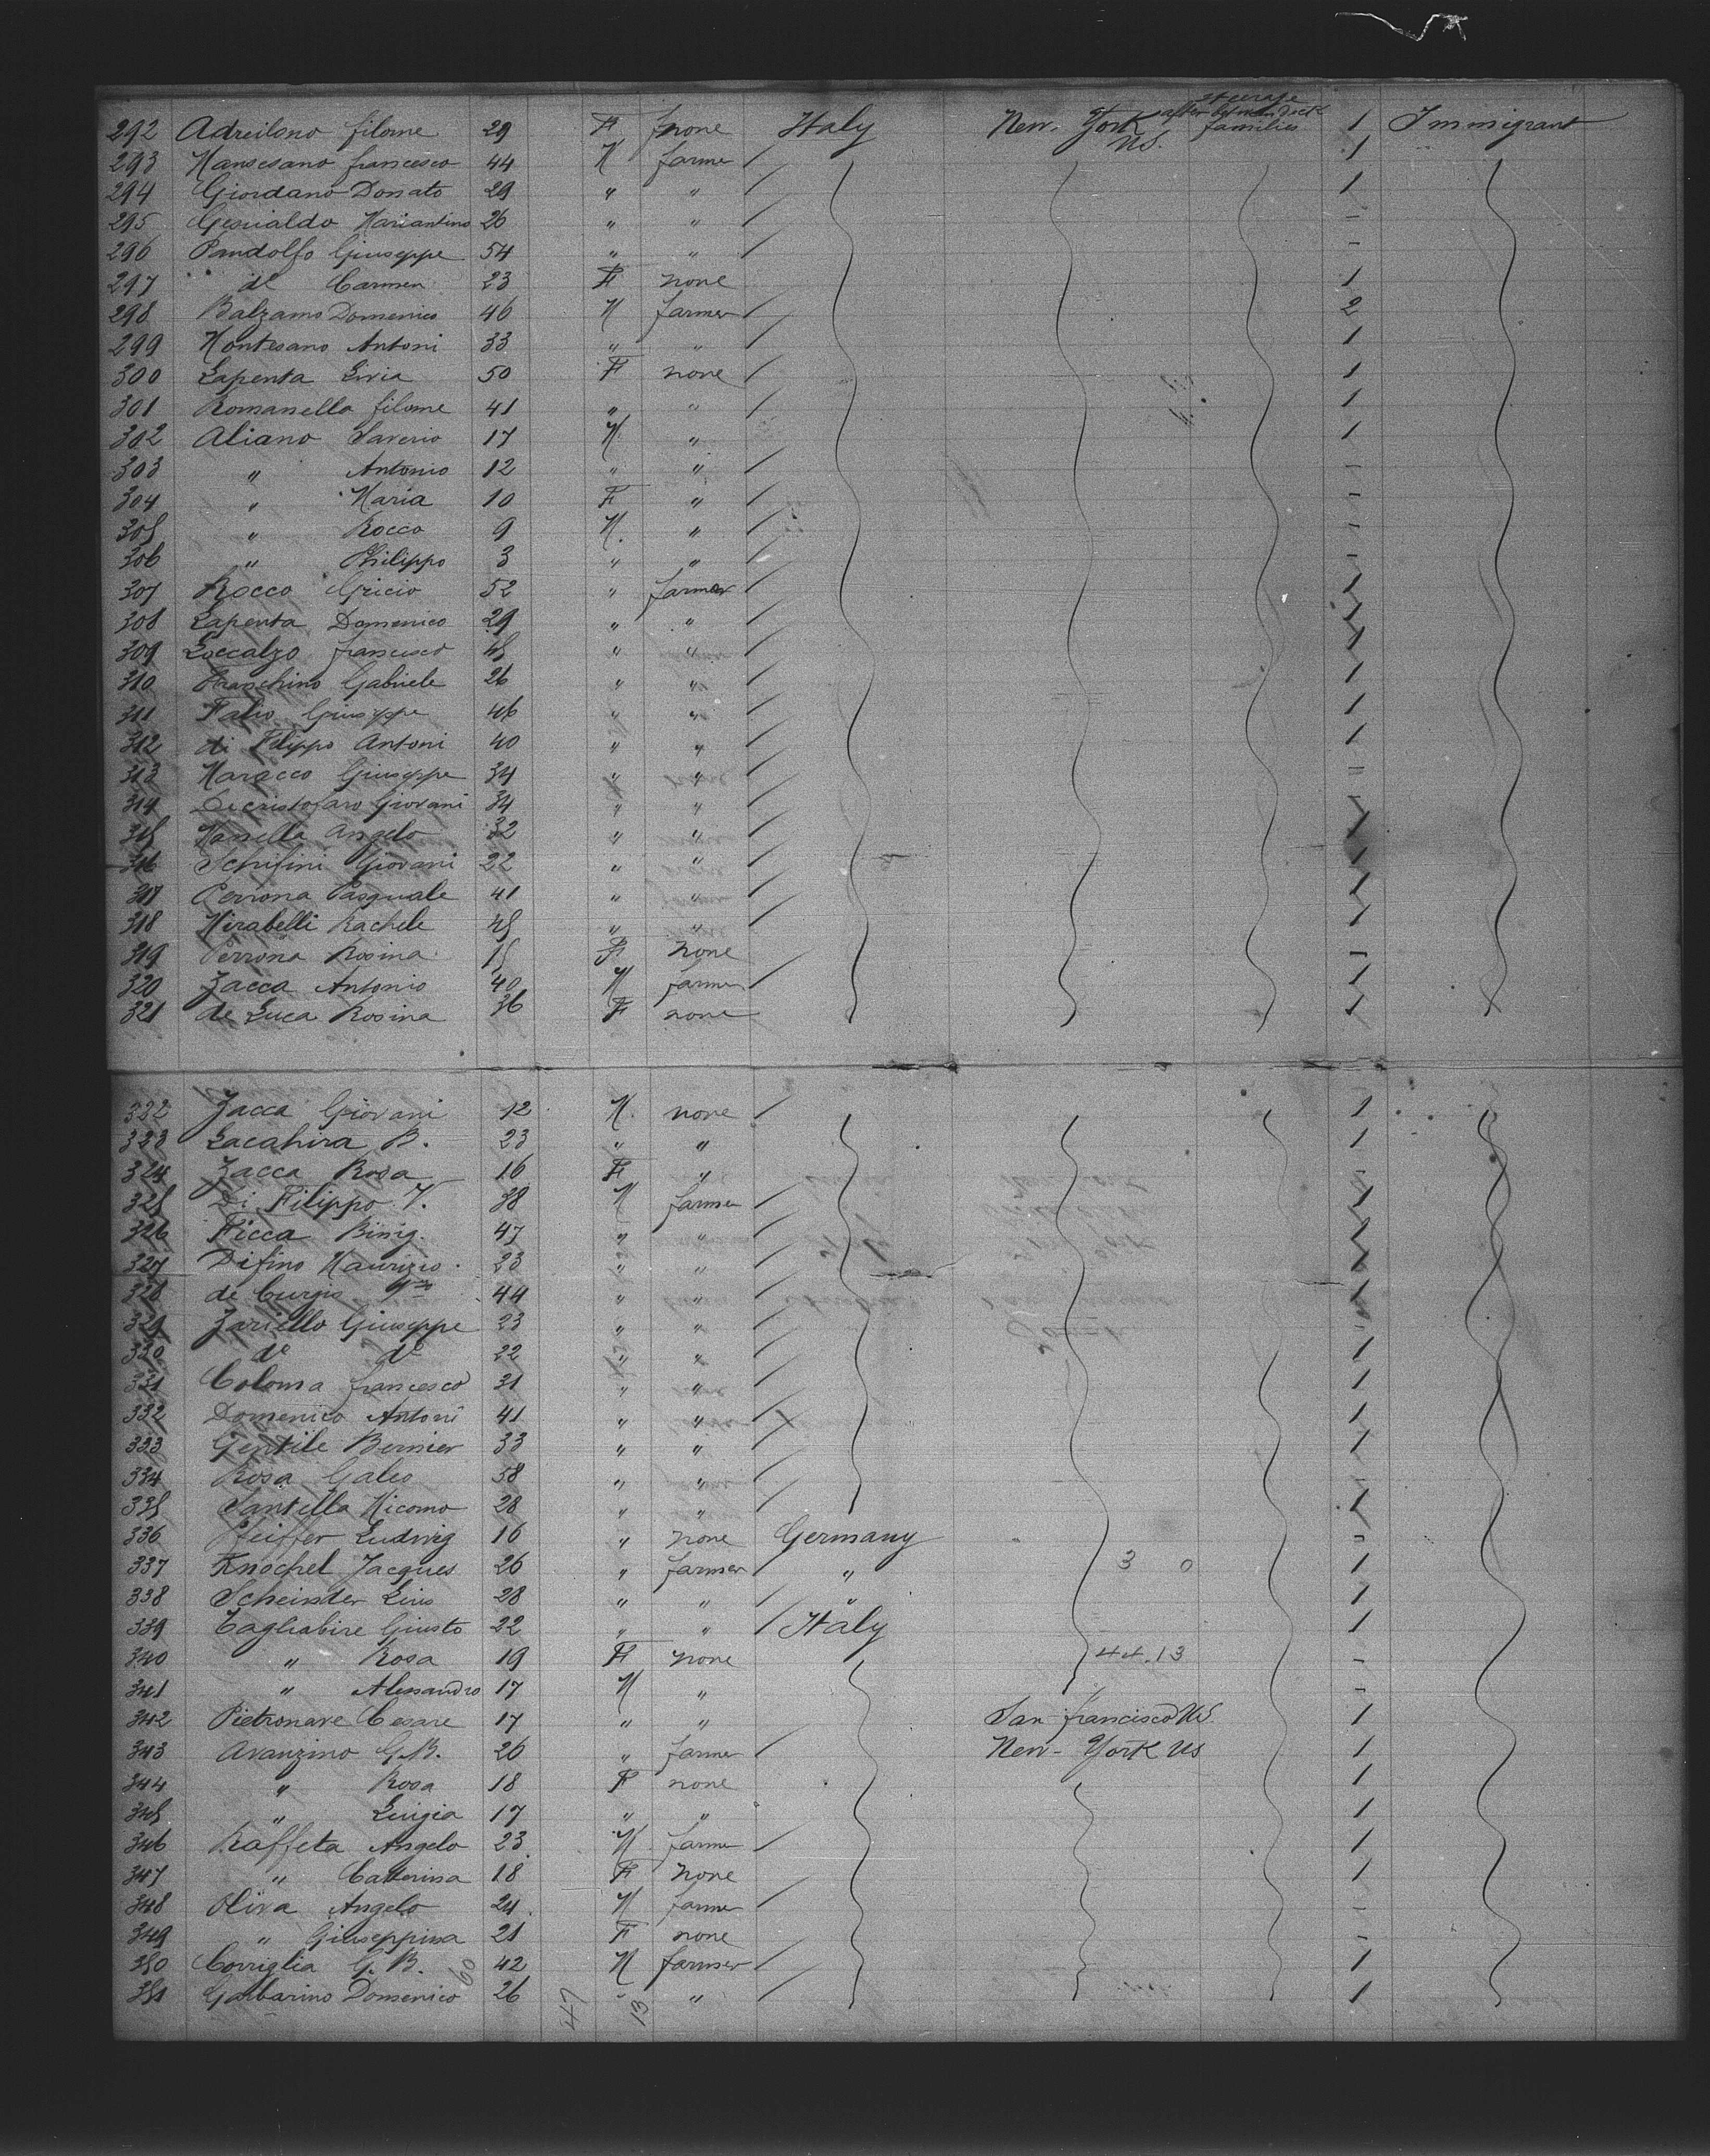 steerage
after between deck
292 Adreilono filome 29 F none Italy New-York families 1 Immigrant
US.
293 Mansesano francesco 44 M farmer / 1
294 Giordano Donato 29 " " / 1
295 Gesualdo Mariantino 26 " " / -
296 Pandolfo Giuseppe 54 " " / -
297 de Carmen 23 F none 1
298 Balzamo Domenico 46 M farmer / 2
299 Montesano Antoni 33 " " / 1
300 Lapenta Livia 50 F none / 1
301 Romanella filome 41 " " / 1
302 Aliano Saverio 17 M. " 1
303 " Antonio 12 " " / -
304 " Maria 10 F " / -
305 " Rocco 9 M. " / -
306 " Philippo 3 " " / -
307 Rocco Gricio 52 " farmer / 1
308 Lapenta Domenico 29 " " / 1
309 Loccalzo francesco 45 " " / 1
310 Fraschino Gabriele 26 " " / 1
311 Falio Giuseppe 46 " " / 1
312 di Filippo Antoni 40 " " / 1
313 Maracco Giuseppe 34 " " / =
314 Decristofaro Giovani 34 " " / 1
315 Manella Angelo 32 " " / 1
316 Schifini Giovani 22 " " / 1
317 Perrona Pasquale 41 " " / 1
318 Mirabelli Rachele 45 " " / 1
319 Perrona Rosina 15 F none -
320 Zacca Antonio 40 M farmer / 1
321 de Luca Rosina 36 F none 1
322 Zacca Giovani 12 M. none / 1
323 Lacahira B. 23 " " 1
324 Zacca Rosa 16 F " -
325 Di Filippo V. 38 M farmer / 1
326 Ficca Binig. 47 " " / 1
327 Difino Maurizio 23 " " / 1
328 de Curgis 44 " " / 1
329 Zariello Giuseppe 23 " " / -
330 do do 22 " " / 1
331 Coloma francesco 31 " " / 1
332 Domenico Antoni 41 " " / 1
333 Gentile Bernier 33 " " / 1
334 Rosa Galeo 58 " " / -
335 Santella Nicomo 28 " " / 1
336 Pfeiffer Ludwig 16 " none Germany -
337 Knochel Jacques 26 " farmer " 3 0 1
338 Scheinder Lius 28 " " " 1
339 Tagliabire Giusto 22 " " / Italy 1
340 " Rosa 19 F none 44.13 -
341 " Alessandro 17 M " -
342 Pietronave Cesare 17 " " San francisco US. 1
343 Avanzino G.B. 26 " farmer / New-York US 1
344 " Rosa 18 F none 1
345 " Luigia 17 " " 1
346 Raffeta Angelo 23 M farmer / 1
347 " Catterina 18 F none 1
348 Oliva Angelo 24 M farmer / -
349 " Giuseppina 21 F none -
350 Corriglia G. B. 42 M farmer / 1
351 Garbarino Domenico 26 " " / 1
60
47
13